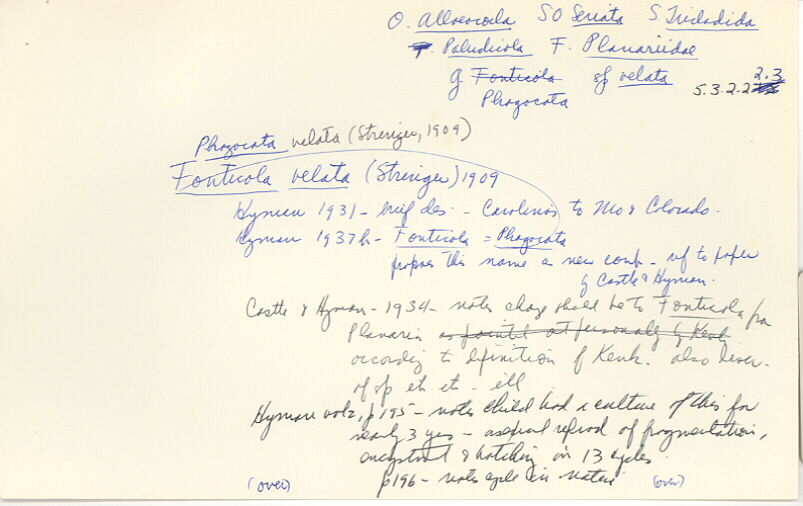 O. Alloeocoela SO Seriata S. Tricladida
T. Paludicola F. Planariidae
g Fonticola sp velata 5.3.2.2 2.3
Phagocata
Phagocata velata (Stringer, 1909)
Fonticola velata (Stringer) 1909
Hyman 1931 - brief des - Carolinas to Mo & Colorado.
Hyman 1937b - Fonticola = Phagocata
propos this name as new comb - ref to paper
of Castle & Hyman.
Castle & Hyman - 1934 - notes change should be to Fonticola from
Planaria as pointed out personally by Kenk
according to definition of Kenk. also
of sp etc etc - ill
Hyman vol 2, p195 - notes Child had a culture of this for
nearly 3 yrs - asexual reprod of fragmentation,
encystment & hatching in 13 cycles
p196 - notes cycle in nature
(over) (over)